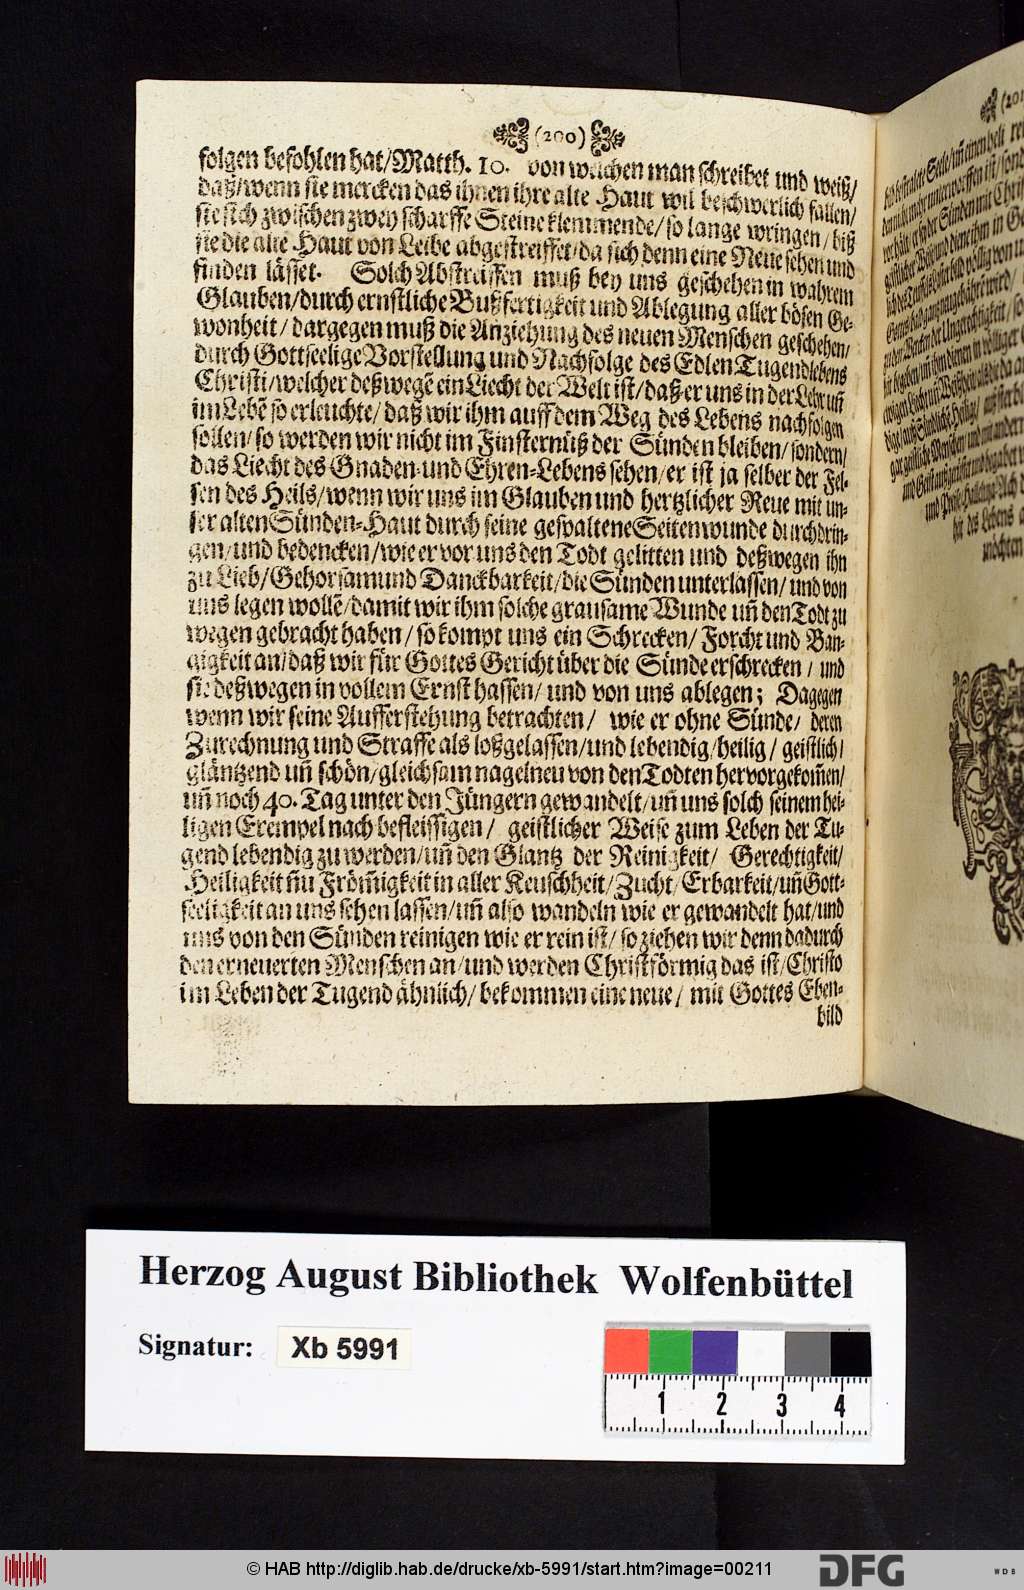 (200)
folgen befohlen hat/Matth. 10. von welchen man schreibet und weiß/
daß/wenn sie mercken das ihnen ihre alte Haut wil beschwerlich fallen/
sie sich zwischen zwey scharffe Steine klemmende/so lange wringen/biß
sie die alte Haut von Leibe abgestreiffet/da sich denn eine Neue sehen und
finden lässet. Solch Abstreiffen muß bey uns geschehen in wahrem
Glauben/durch ernstliche Bußfertigkeit und Ablegung aller bösen Ge-
wonheit/dargegen muß die Anziehung des neuen Menschen geschehen/
durch Gottseelige Vorstellung und Nachfolge des Edlen Tugendlebens
Christi/welcher deßwegē ein Liecht der Welt ist/daß er uns in der Lehr uñ
im Lebē so erleuchte/daß wir ihm auff dem Weg des Lebens nachfolgen
sollen/so werden wir nicht im Finsternüß der Sünden bleiben/sondern/
das Liecht des Gnaden- und Ehren-Lebens sehen/er ist ja selber der Fel-
sen des Heils/wenn wir uns im Glauben und hertzlicher Reue mit un-
ser alten Sünden-Haut durch seine gespaltene Seitenwunde durchdrin-
gen/und bedencken/wie er vor uns den Todt gelitten und deßwegen ihn
zu Lieb/Gehorsam und Danckbarkeit/die Sünden unterlassen/und von
uns legen wollē/damit wir ihm solche grausame Wunde uñ den Todt zu
wegen gebracht haben/so kompt uns ein Schrecken/Forcht und Ban-
gigkeit an/daß wir für Gottes Gericht über die Sünde erschrecken/und
sie deßwegen in vollem Ernst hassen/und von uns ablegen; Dagegen
wenn wir seine Aufferstehung betrachten/ wie er ohne Sünde/ deren
Zurechnung und Straffe als loßgelassen/und lebendig/heilig/geistlich/
gläntzend uñ schön/gleichsam nagelneu von den Todten hervorgekom̃en/
uñ noch 40. Tag unter den Jüngern gewandelt/uñ uns solch seinem hei-
ligen Exempel nach befleissigen/ geistlicher Weise zum Leben der Tu-
gend lebendig zu werden/uñ den Glantz der Reinigkeit/ Gerechtigkeit/
Heiligkeit uñ Fröm̃igkeit in aller Keuschheit/Zucht/Erbarkeit/uñ Gott-
seeligkeit an uns sehen lassen/uñ also wandeln wie er gewandelt hat/und
uns von den Sünden reinigen wie er rein ist/so ziehen wir denn dadurch
den erneuerten Menschen an/und werden Christförmig das ist/Christo
im Leben der Tugend ähnlich/bekommen eine neue/ mit Gottes Eben-
bild
Herzog August Bibliothek Wolfenbüttel
Signatur: Xb 5991
1 2 3 4
© HAB http://diglib.hab.de/drucke/xb-5991/start.htm?image=00211
DFG
WDB